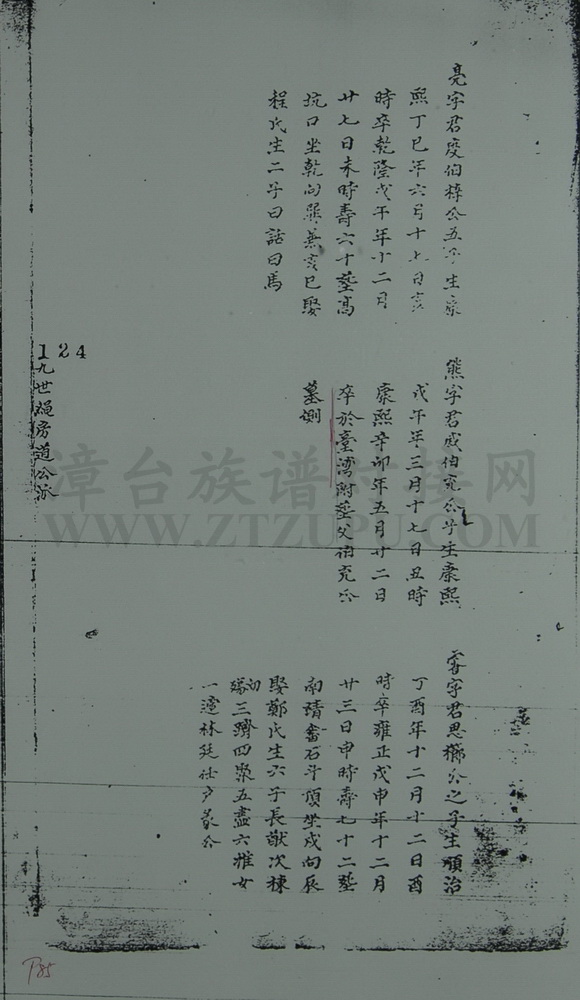 亮字君度伯梓公五子生康
熙丁巳年六月十七日亥
時卒乾隆戊午年十二月
廿七日未時壽六十葬高
坑口坐乾向巽兼亥巳娶
程氏生二子曰話曰馬
熊字君威伯充公子生康熙
戊午年三月十七日丑時
康熙辛卯年五月廿二日
卒於臺湾附葬父伯充公
墓側
字君思 公之子生順治
丁酉年十二月十二日酉
時卒雍正戊申年十二月
廿三日申時壽七十二葬
南靖 石斗頂坐戌向辰
娶鄭氏生六子長猷次棟
三躋四聚五盡六推女
一適林廷仕 公
124
九世 房道公派
漳台族谱对接网
WWW.ZTZUPU.COM
P85